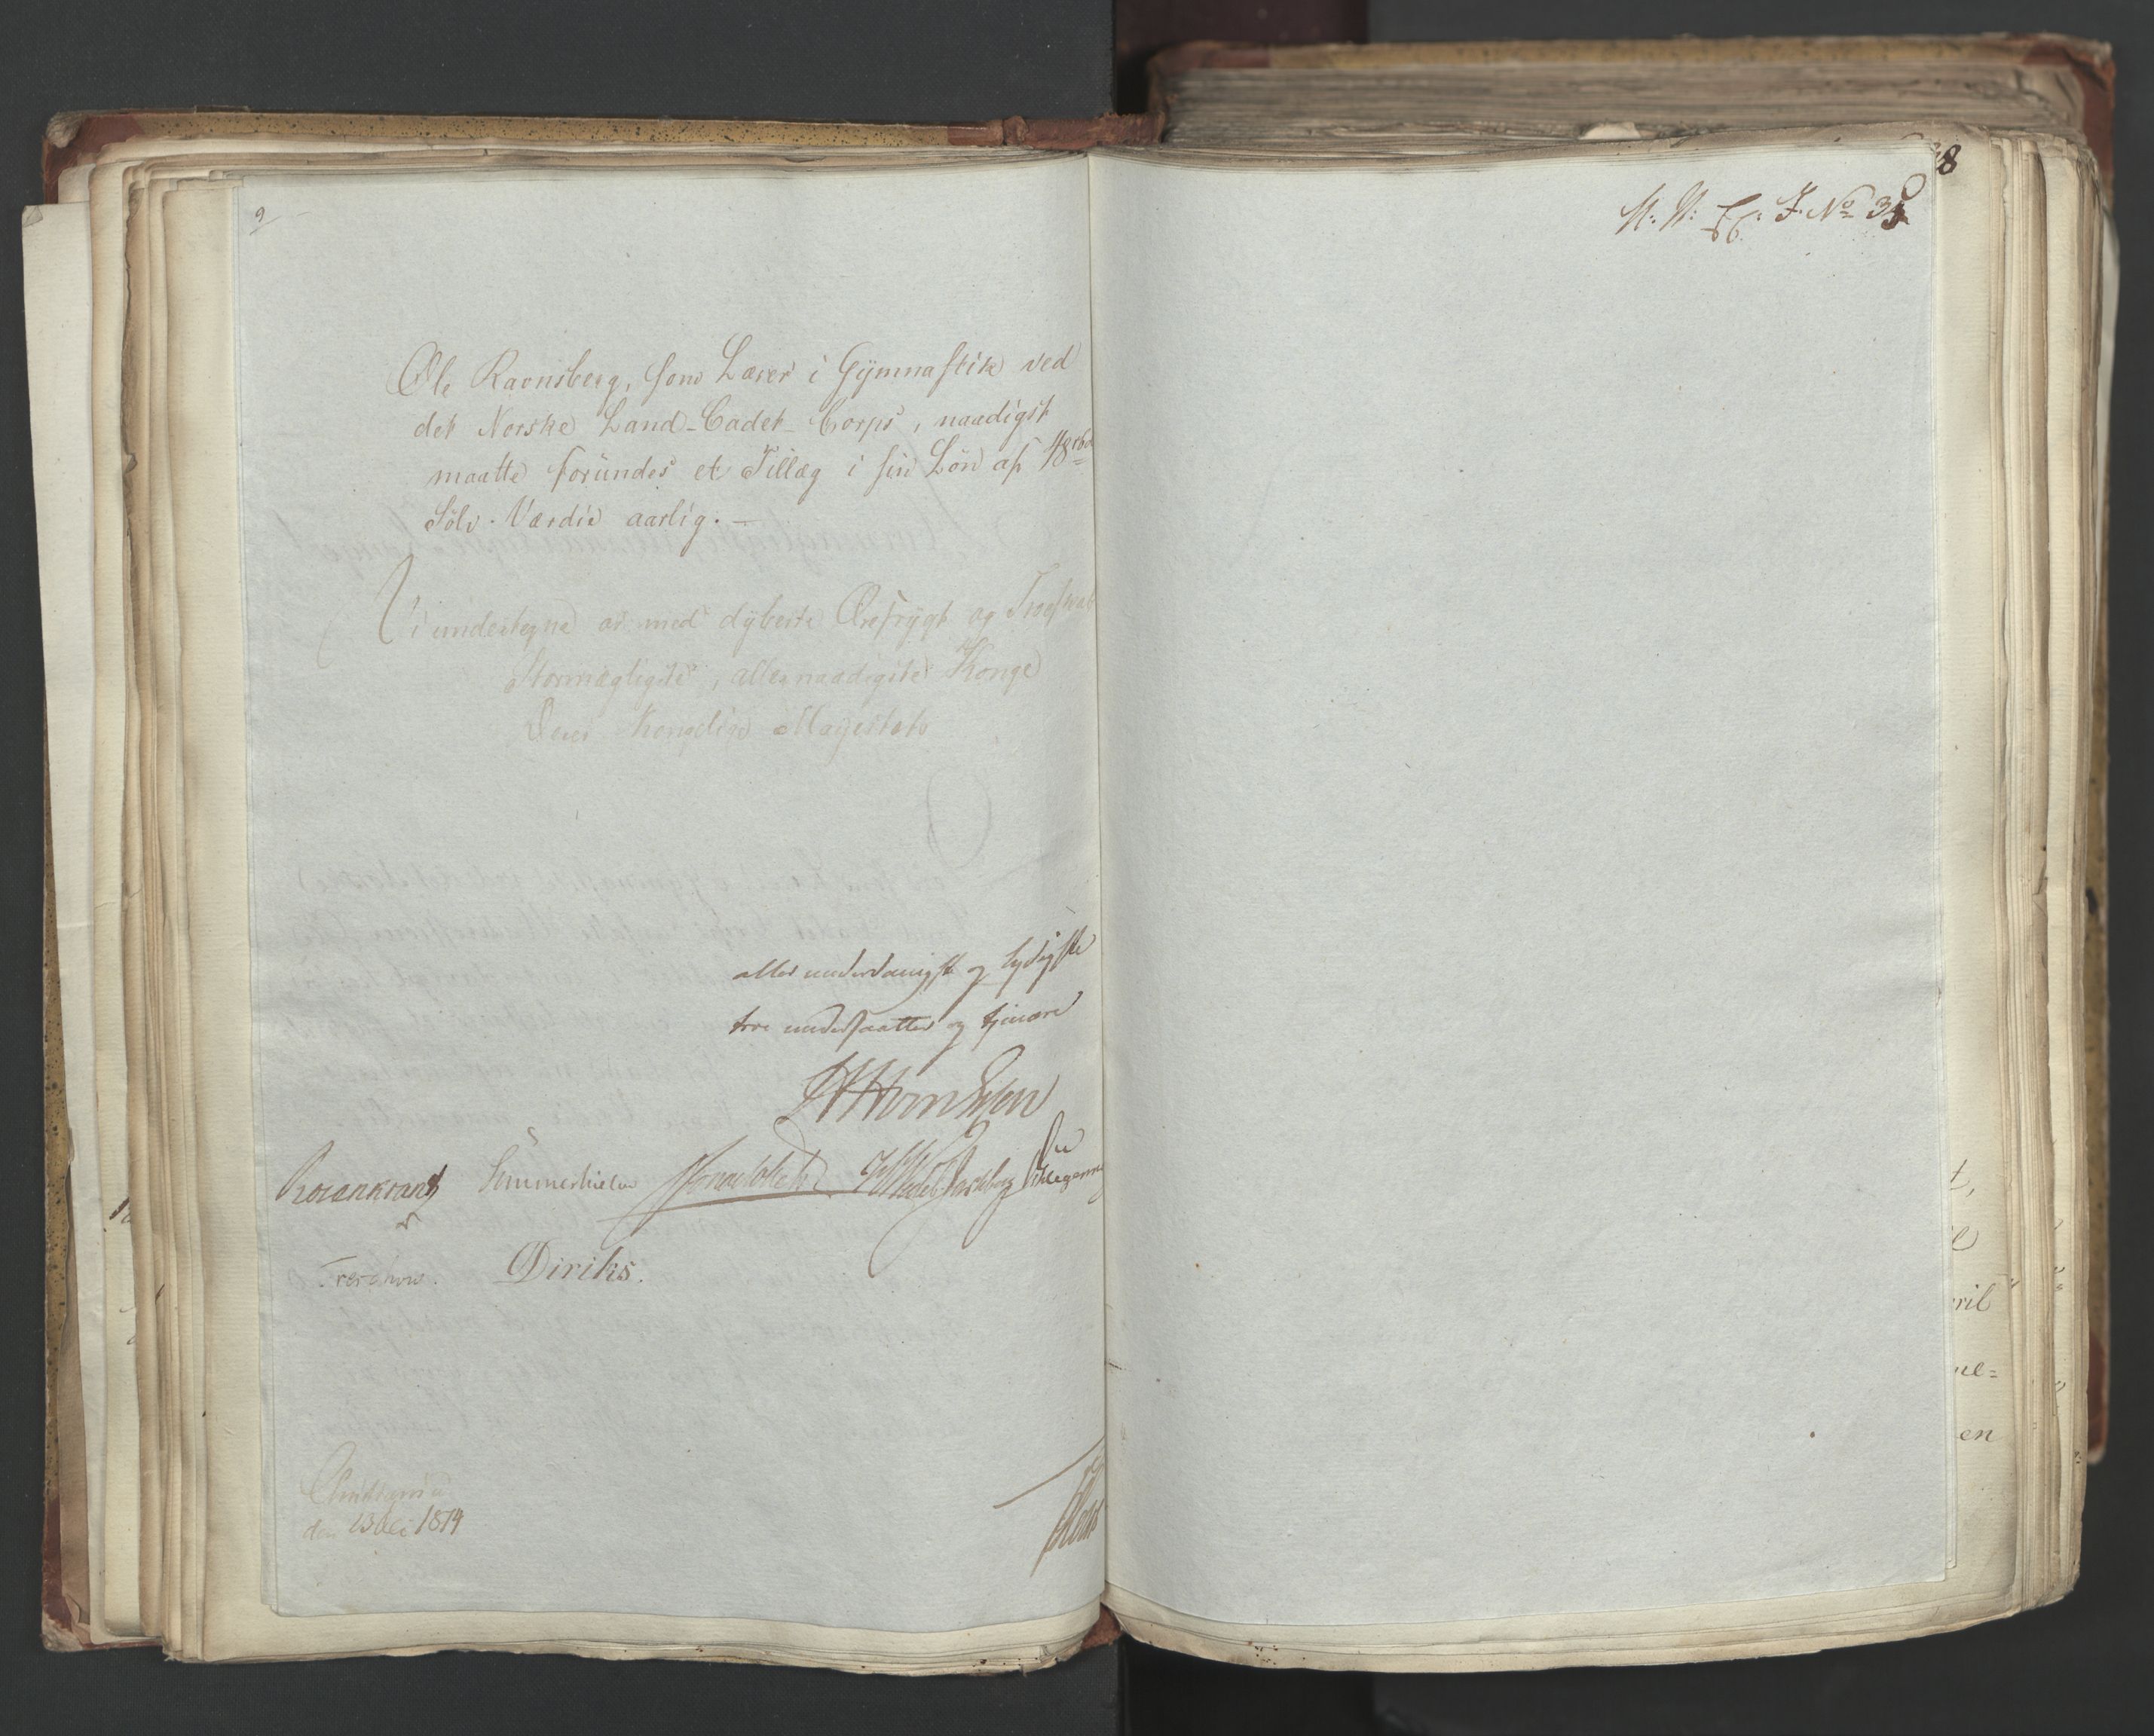 9
Ole Ravnsberg, som Lærer i Gymnastik ved
det Norske Land-Cadet-Corps, naadigst
maatte forundes et Tillæg i sin Lön af 48 rbd
Sölv-Værdie aarlig. —
Vi undertegne os med dybeste Ærefrygt og Troeskab
Stormægtigste, allernaadigste Konge
Deres Kongelige Majestæts
allerunderdanigste og lydigste
troe undersaatter og tjenere
Rosenkrantz Sommerhielm
Treschow. Diriks.
Christiania
den 1814
No 35
8
t,
ril
ne=
en